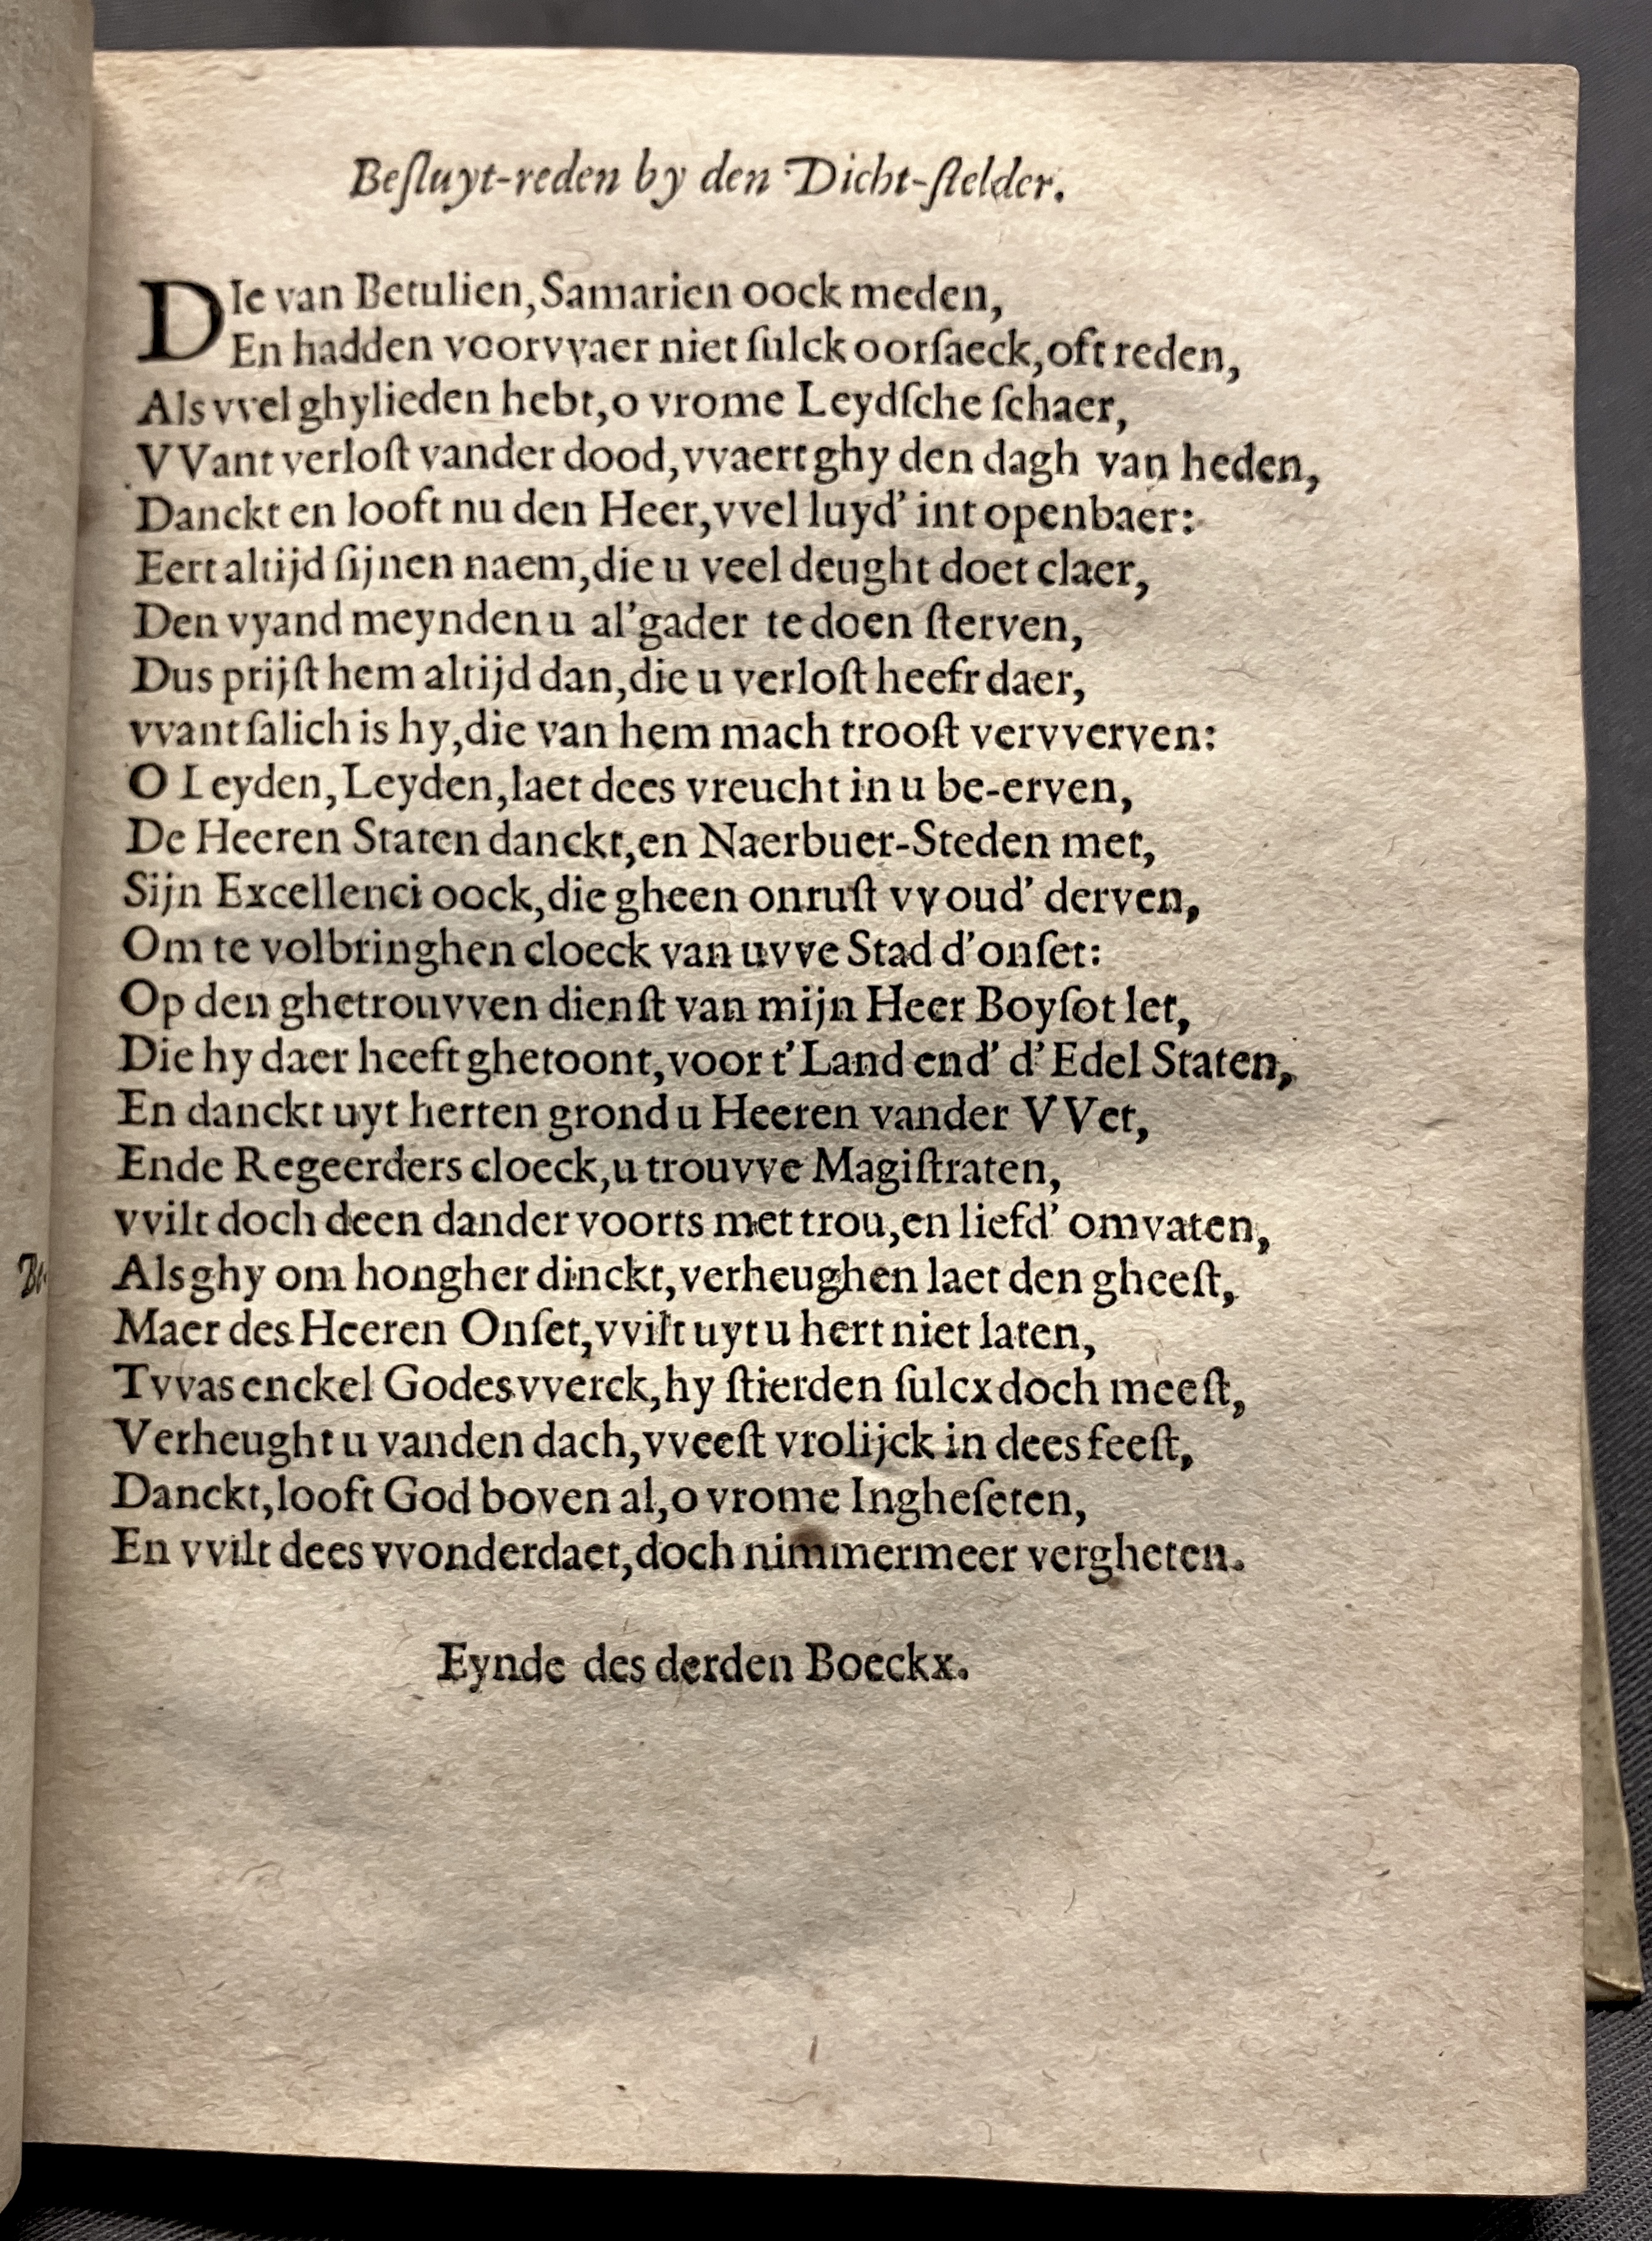 Beſluyt-reden by den Dicht-ſtelder.
DIe van Betulien, Samarien oock meden,
En hadden voorvvaer niet ſulck oorſaeck, oft reden,
Als vvel ghylieden hebt, o vrome Leydſche ſchaer,
VVant verloſt vander dood, vvaert ghy den dagh van heden,
Danckt en looft nu den Heer, vvel luyd' int openbaer:
Eert altijd ſijnen naem, die u veel deught doet claer,
Den vyand meynden u al'gader te doen ſterven,
Dus prijſt hem altijd dan, die u verloſt heefr daer,
vvant ſalich is hy, die van hem mach trooſt vervverven:
O Leyden, Leyden, laet dees vreucht in u be-erven,
De Heeren Staten danckt, en Naerbuer-Steden met,
Sijn Excellenci oock, die gheen onruſt vvoud' derven,
Om te volbringhen cloeck van uvve Stad d'onſet:
Op den ghetrouvven dienſt van mijn Heer Boyſot let,
Die hy daer heeft ghetoont, voor t'Land end' d'Edel Staten,
En danckt uyt herten grond u Heeren vander VVet,
Ende Regeerders cloeck, u trouvve Magiſtraten,
vvilt doch deen dander voorts met trou, en liefd' omvaten,
Als ghy om hongher dinckt, verheughen laet den gheeſt,
Maer des Heeren Onſet, vvilt uyt u hert niet laten,
Tvvas enckel Godes vverck, hy ſtierden ſulcx doch meeſt,
Verheught u vanden dach, vveeſt vrolijck in dees feeſt,
Danckt, looft God boven al, o vrome Ingheſeten,
En vvilt dees vvonderdaet, doch nimmermeer vergheten.
Eynde des derden Boeckx.